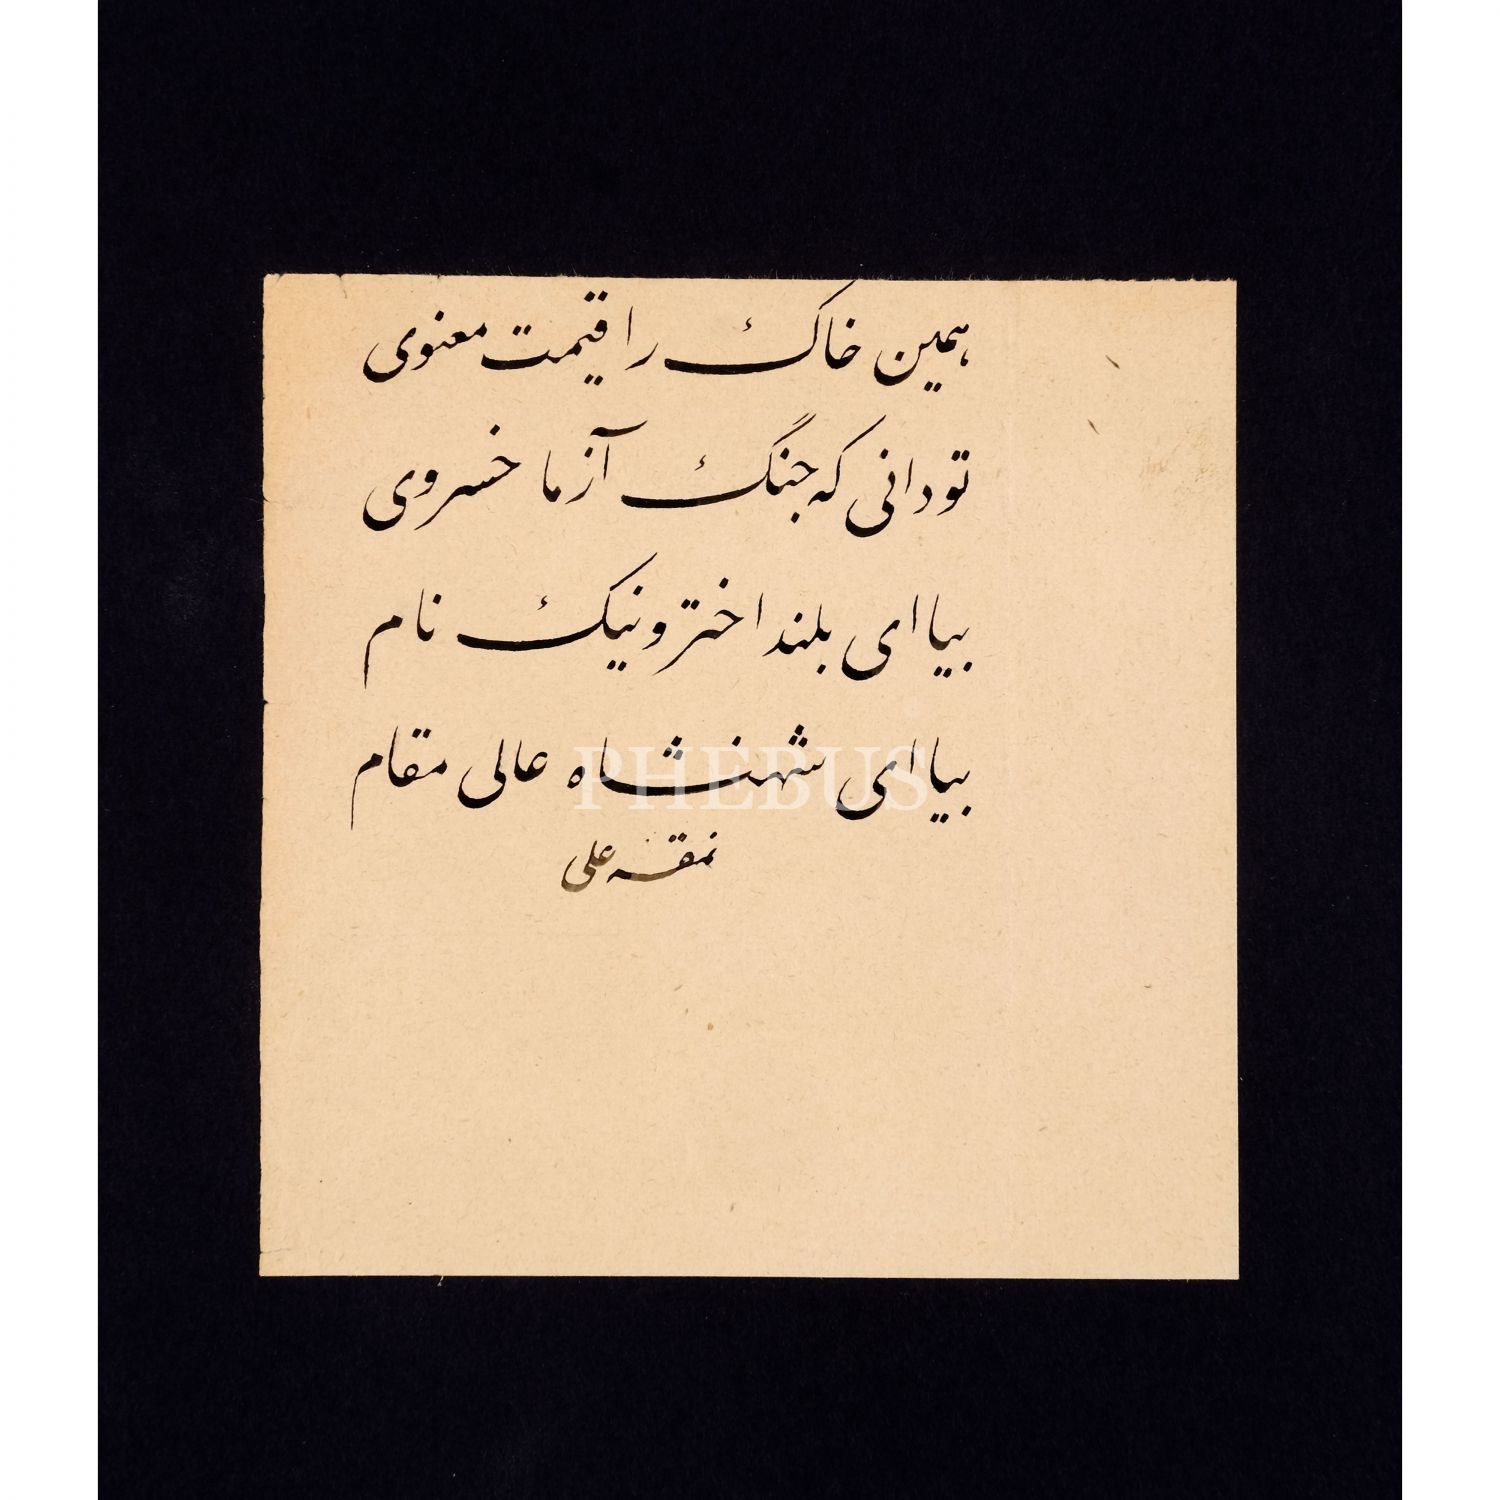 همین خاک را قیمت معنوی
تو دانی که جنگ آزما خسروی
بیا ای بلند اختر و نیک نام
بیا ای شهنشاه عالی مقام
PHEBUS
نمقه علی